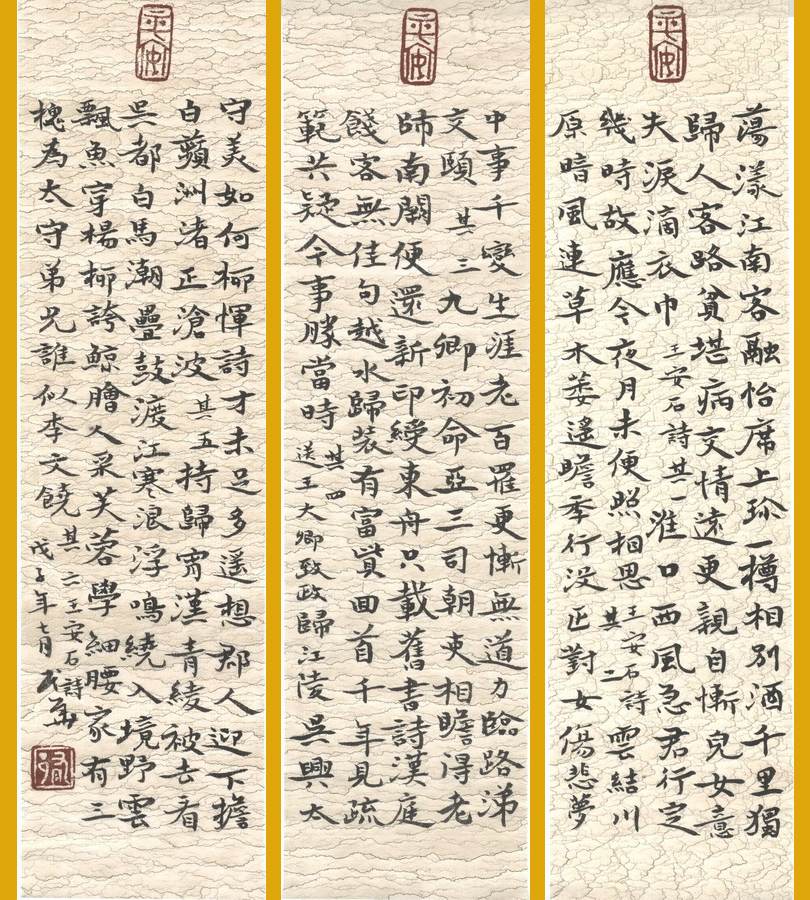 平安
蕩漾江南客融怡席上珍一樽相別酒千里獨
歸人客路貧堪病交情遠更親自慚兒女意
失淚滴衣巾 王安石詩其一 淮口西風急君行定
幾時故應今夜月未便照相思 王安石詩其二 雲結川
原暗風連草木萎遙瞻季行沒正對女傷悲夢
平安
中事千變生涯老百罹更慚無道力臨路涕
交頤 其三 九卿初命亞三司朝吏相瞻得老
師南闕便還新印綬東舟只載舊書詩漢庭
餞客無佳句越水歸裝有富貲回首千年見疏
範共疑今事勝當時 其四 送王大卿致政歸江陵 吳興太
平安
守美如何柳惲詩才未足多遙想郡人迎下擔
白蘋洲渚正滄波 其五 持歸霄漢青綾被去看
吳都白馬潮疊鼓渡江寒浪浮鳴繞入境野雲
飄魚穿楊柳誇鯨膾人采芙蓉學細腰家有三
槐為太守弟兄誰似李文饒 其六王安石詩
戊子年七月